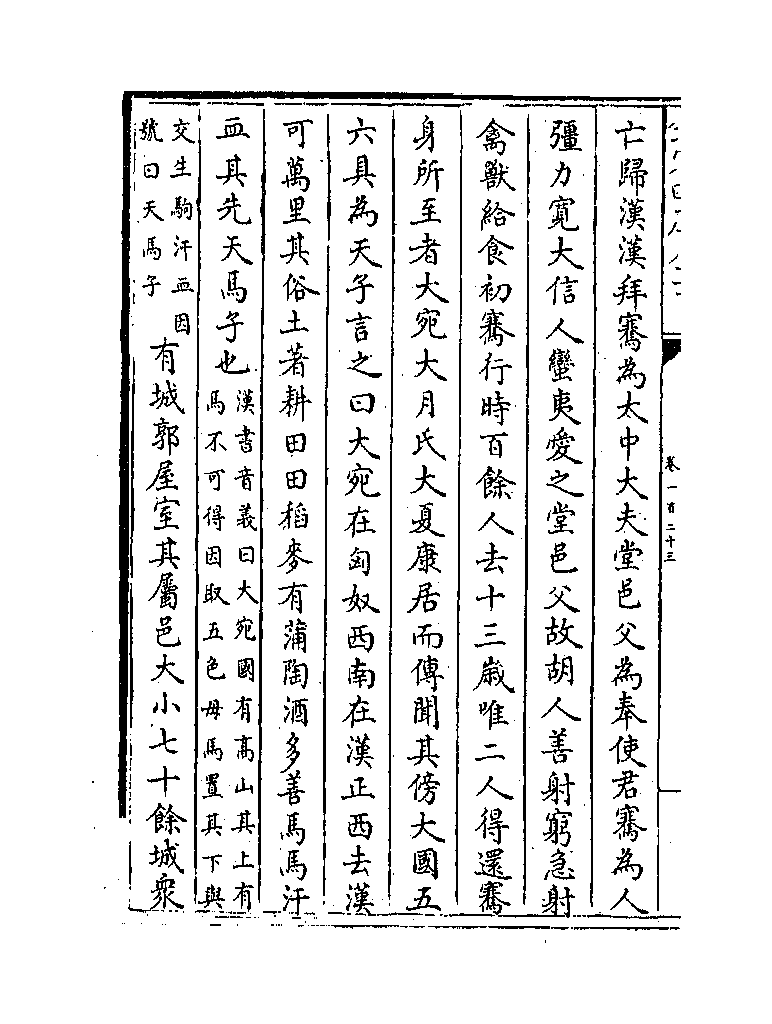 亡歸漢漢拜騫為太中大夫堂邑父為奉使君騫為人
彊力寛大信人蠻夷愛之堂邑父故胡人善射窮急射
禽獸給食初騫行時百餘人去十三歳唯二人得還騫
身所至者大宛大月氏大夏康居而傳聞其傍大國五
六具為天子言之曰大宛在匈奴西南在漢正西去漢
可萬里其俗土著耕田田稻麥有蒲陶酒多善馬馬汗
血其先天馬子也漢書音義曰大宛國有髙山其上有
馬不可得因取五色母馬置其下與
交生駒汗血因
號曰天馬子
有城郭屋室其屬邑大小七十餘城衆
卷一百二十三